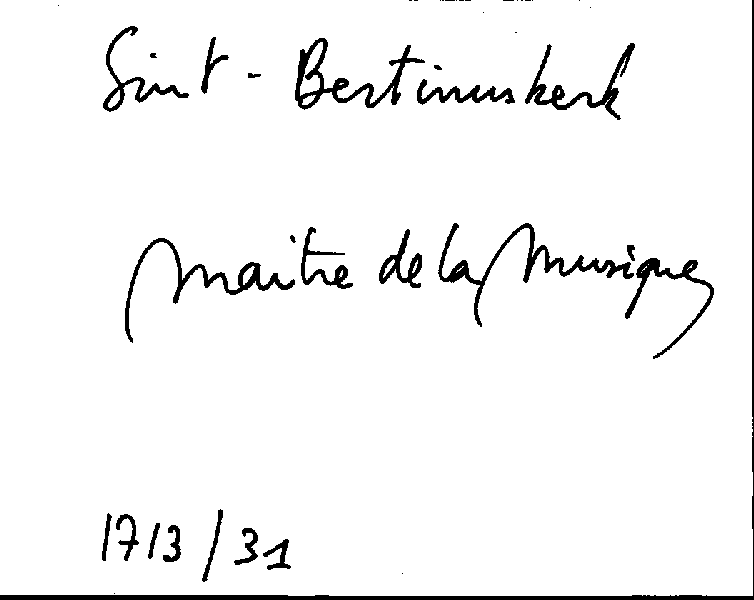 Sint - Bertinuskerk
Maitre de la Musique
1713 / 31